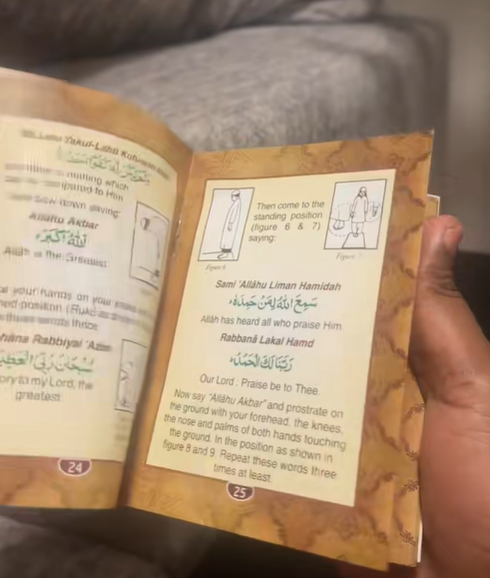 Takul-Lahū Kufuwan
nothing which
compared to Him
down saying:
Allāhu Akbar
اللهُ اَكْبَرُ
Allāh is the Greatest.
your hands on your
position (Ruku
thrice
Rabbiyal 'Azim
سُبْحَانَ رَبِّيَ الْعَظِيْمِ
to my Lord, the
greatest.
24
Then come to the
standing position
(figure 6 & 7)
saying:
Figure 6
Figure 7
Sami 'Allāhu Liman Hamidah
سَمِعَ اللهُ لِمَنْ حَمِدَهُ
Allāh has heard all who praise Him
Rabbanā Lakal Hamd
رَبَّنَا لَكَ الْحَمْدُ
Our Lord : Praise be to Thee.
Now say "Allāhu Akbar" and prostrate on
the ground with your forehead, the knees,
the nose and palms of both hands touching
the ground. In the position as shown in
figure 8 and 9. Repeat these words three
times at least.
25